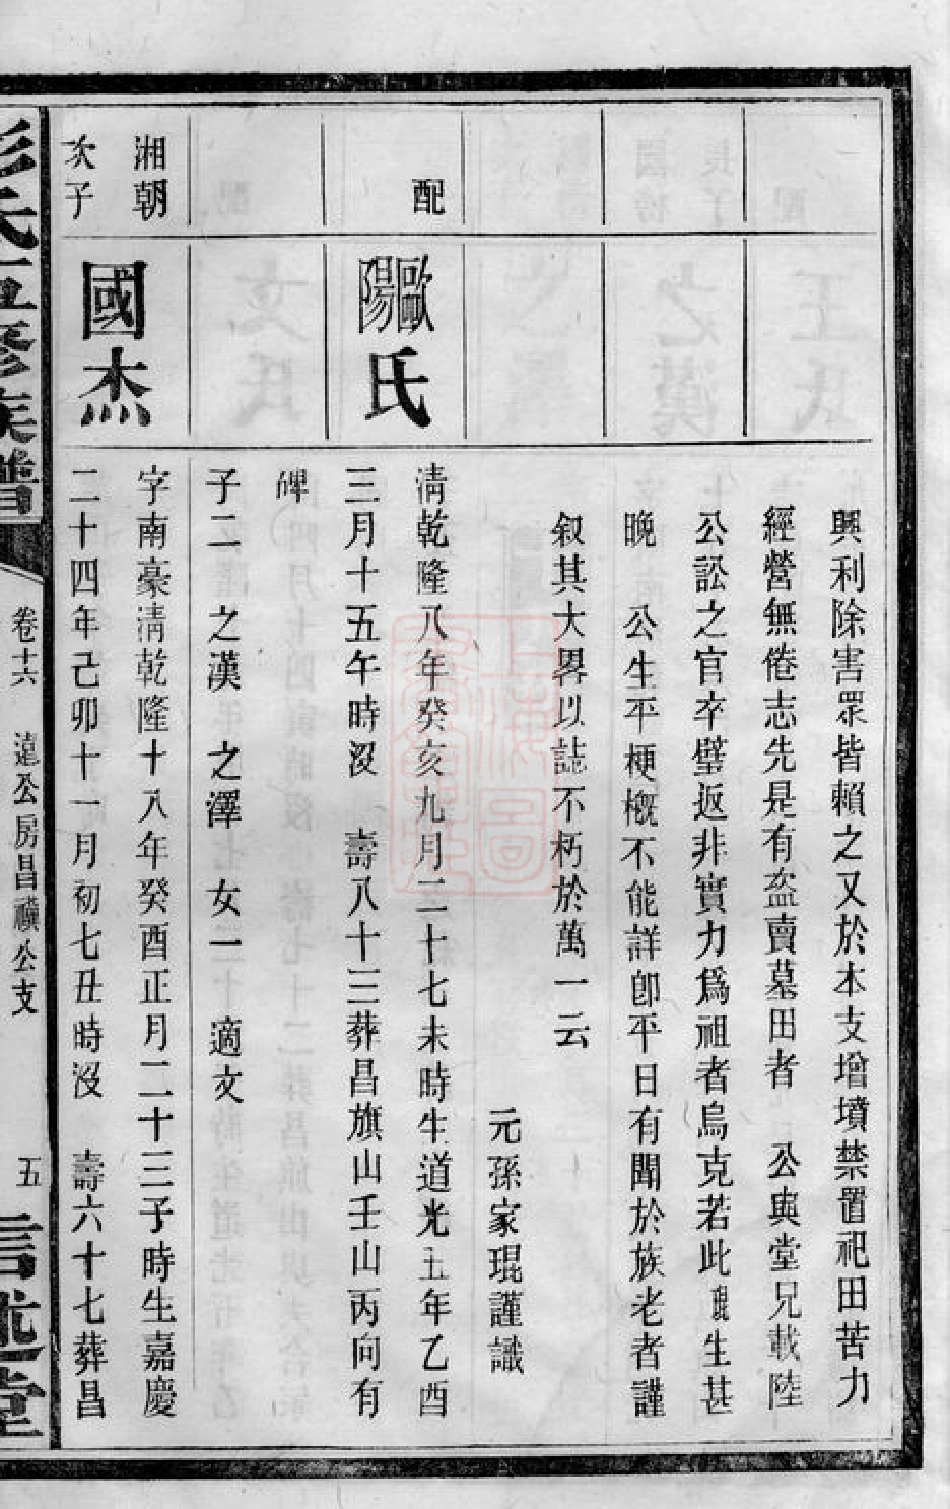 興利除害眾皆賴之又於本支增墳禁置祀田苦力
經營無倦志先是有盜賣墓田者 公與堂兄載陸
公訟之官卒璧返非實力為祖者烏克若此琨生甚
晚 公生平梗概不能詳卽平日有聞於族老者謹
叙其大畧以誌不朽於萬一云
元孫家琨謹識
配
歐陽氏
淸乾隆八年癸亥九月二十七未時生道光五年乙酉
三月十五午時沒 壽八十三葬昌旗山壬山丙向有
碑
子二 之漢 之澤 女一 適文
湘朝
次子
國杰
字南豪淸乾隆十八年癸酉正月二十三子時生嘉慶
二十四年己卯十一月初七丑時沒 壽六十七葬昌
彭氏五修族譜
卷十六 遠公房昌禩公支
五
述堂